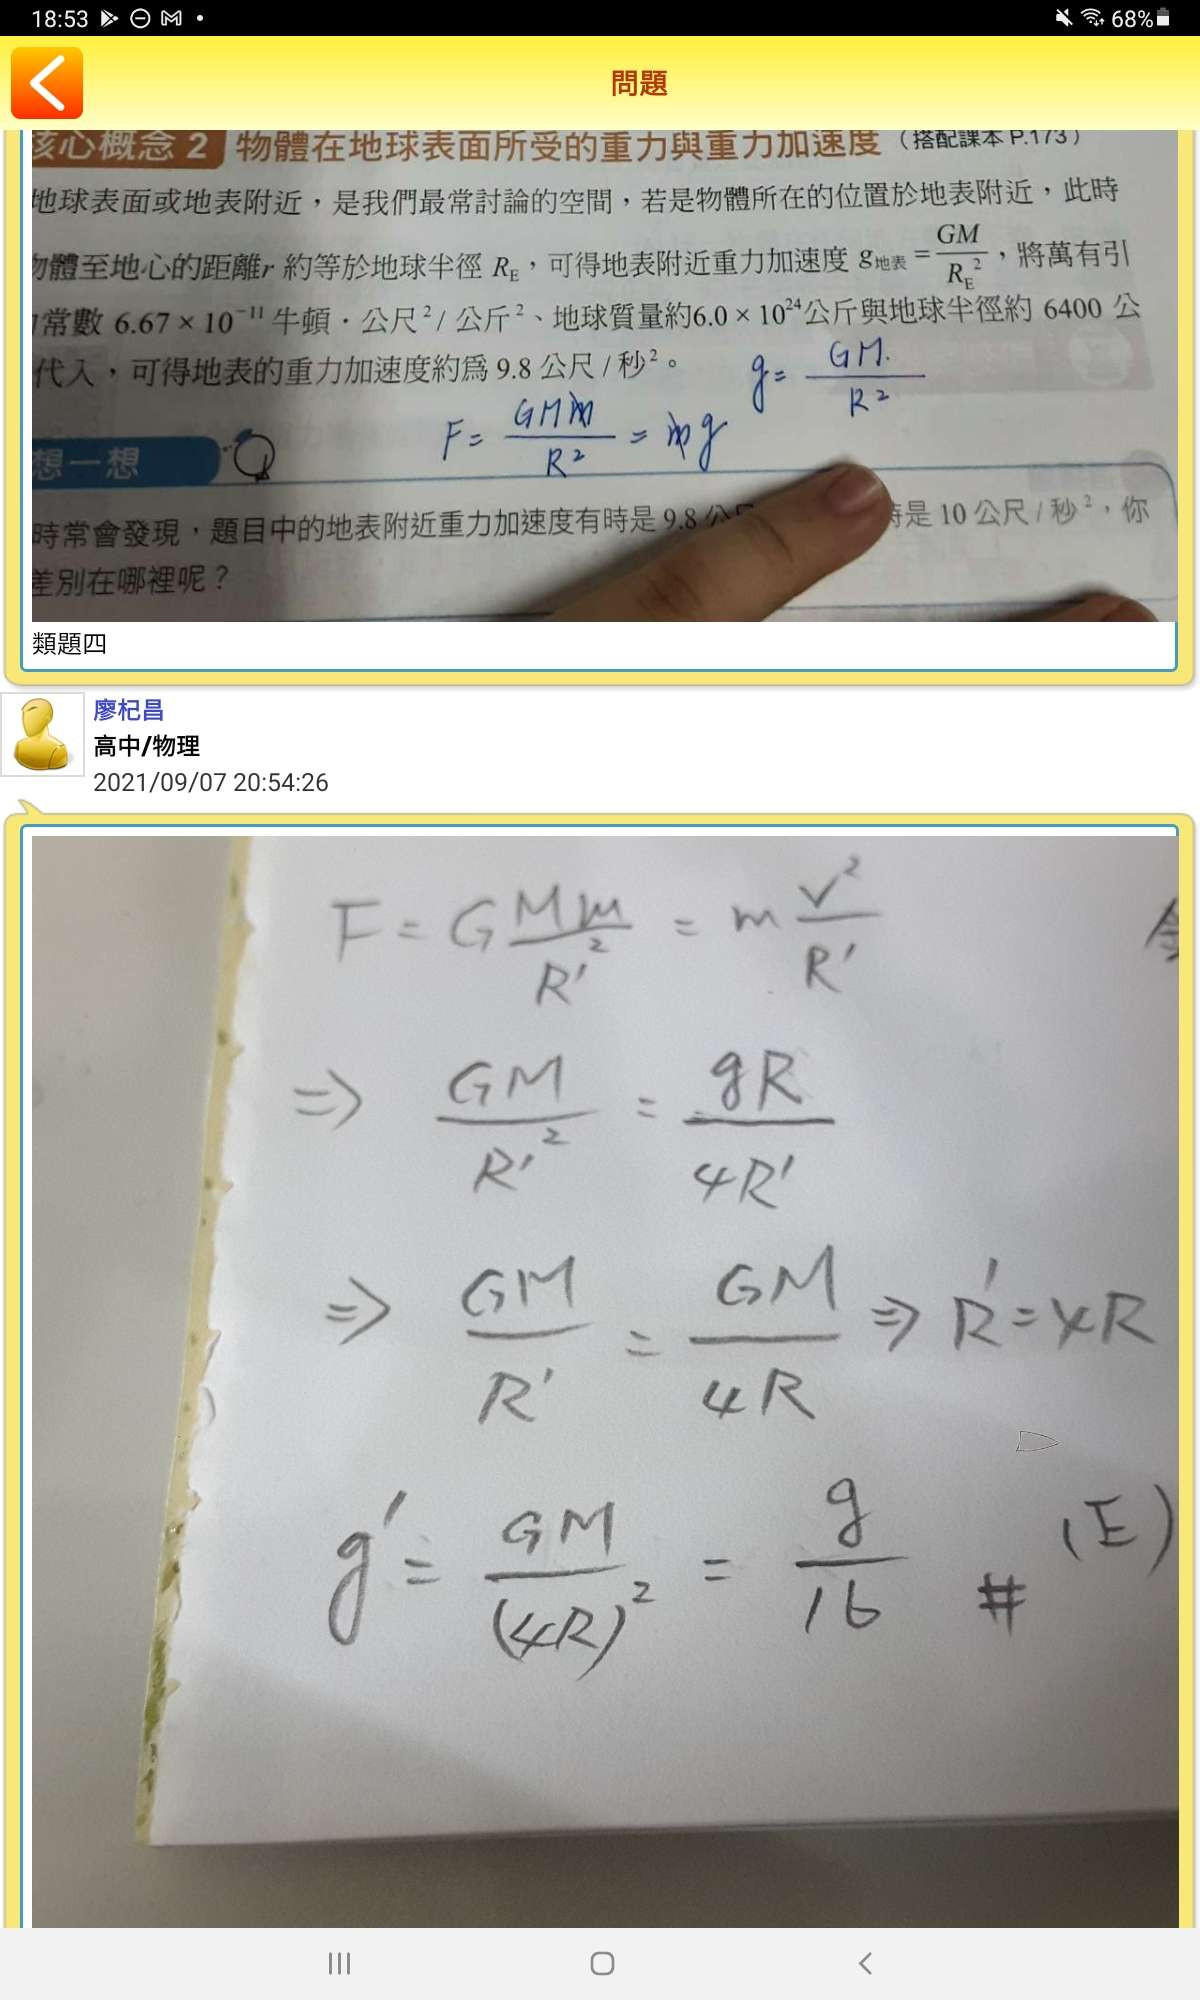 18:53
68%
問題
核心概念 2 物體在地球表面所受的重力與重力加速度（搭配課本 P.173）
地球表面或地表附近，是我們最常討論的空間，若是物體所在的位置於地表附近，此時
物體至地心的距離r 約等於地球半徑 R_E，可得地表附近重力加速度 g地表 = GM/R_E²，將萬有引
常數 6.67 × 10⁻¹¹ 牛頓．公尺²/ 公斤²、地球質量約6.0 × 10²⁴公斤與地球半徑約 6400 公
代入，可得地表的重力加速度約為 9.8 公尺 / 秒²。
g= GM/R²
F= GMm/R² = mg
想一想
時常會發現，題目中的地表附近重力加速度有時是 9.8 公 時是 10 公尺 / 秒²，你
差別在哪裡呢？
類題四
廖杞昌
高中/物理
2021/09/07 20:54:26
F = G Mm/R'² = m v²/R'
=> GM/R'² = gR/4R'
=> GM/R' = GM/4R => R' = 4R
g' = GM/(4R)² = g/16 # (E)